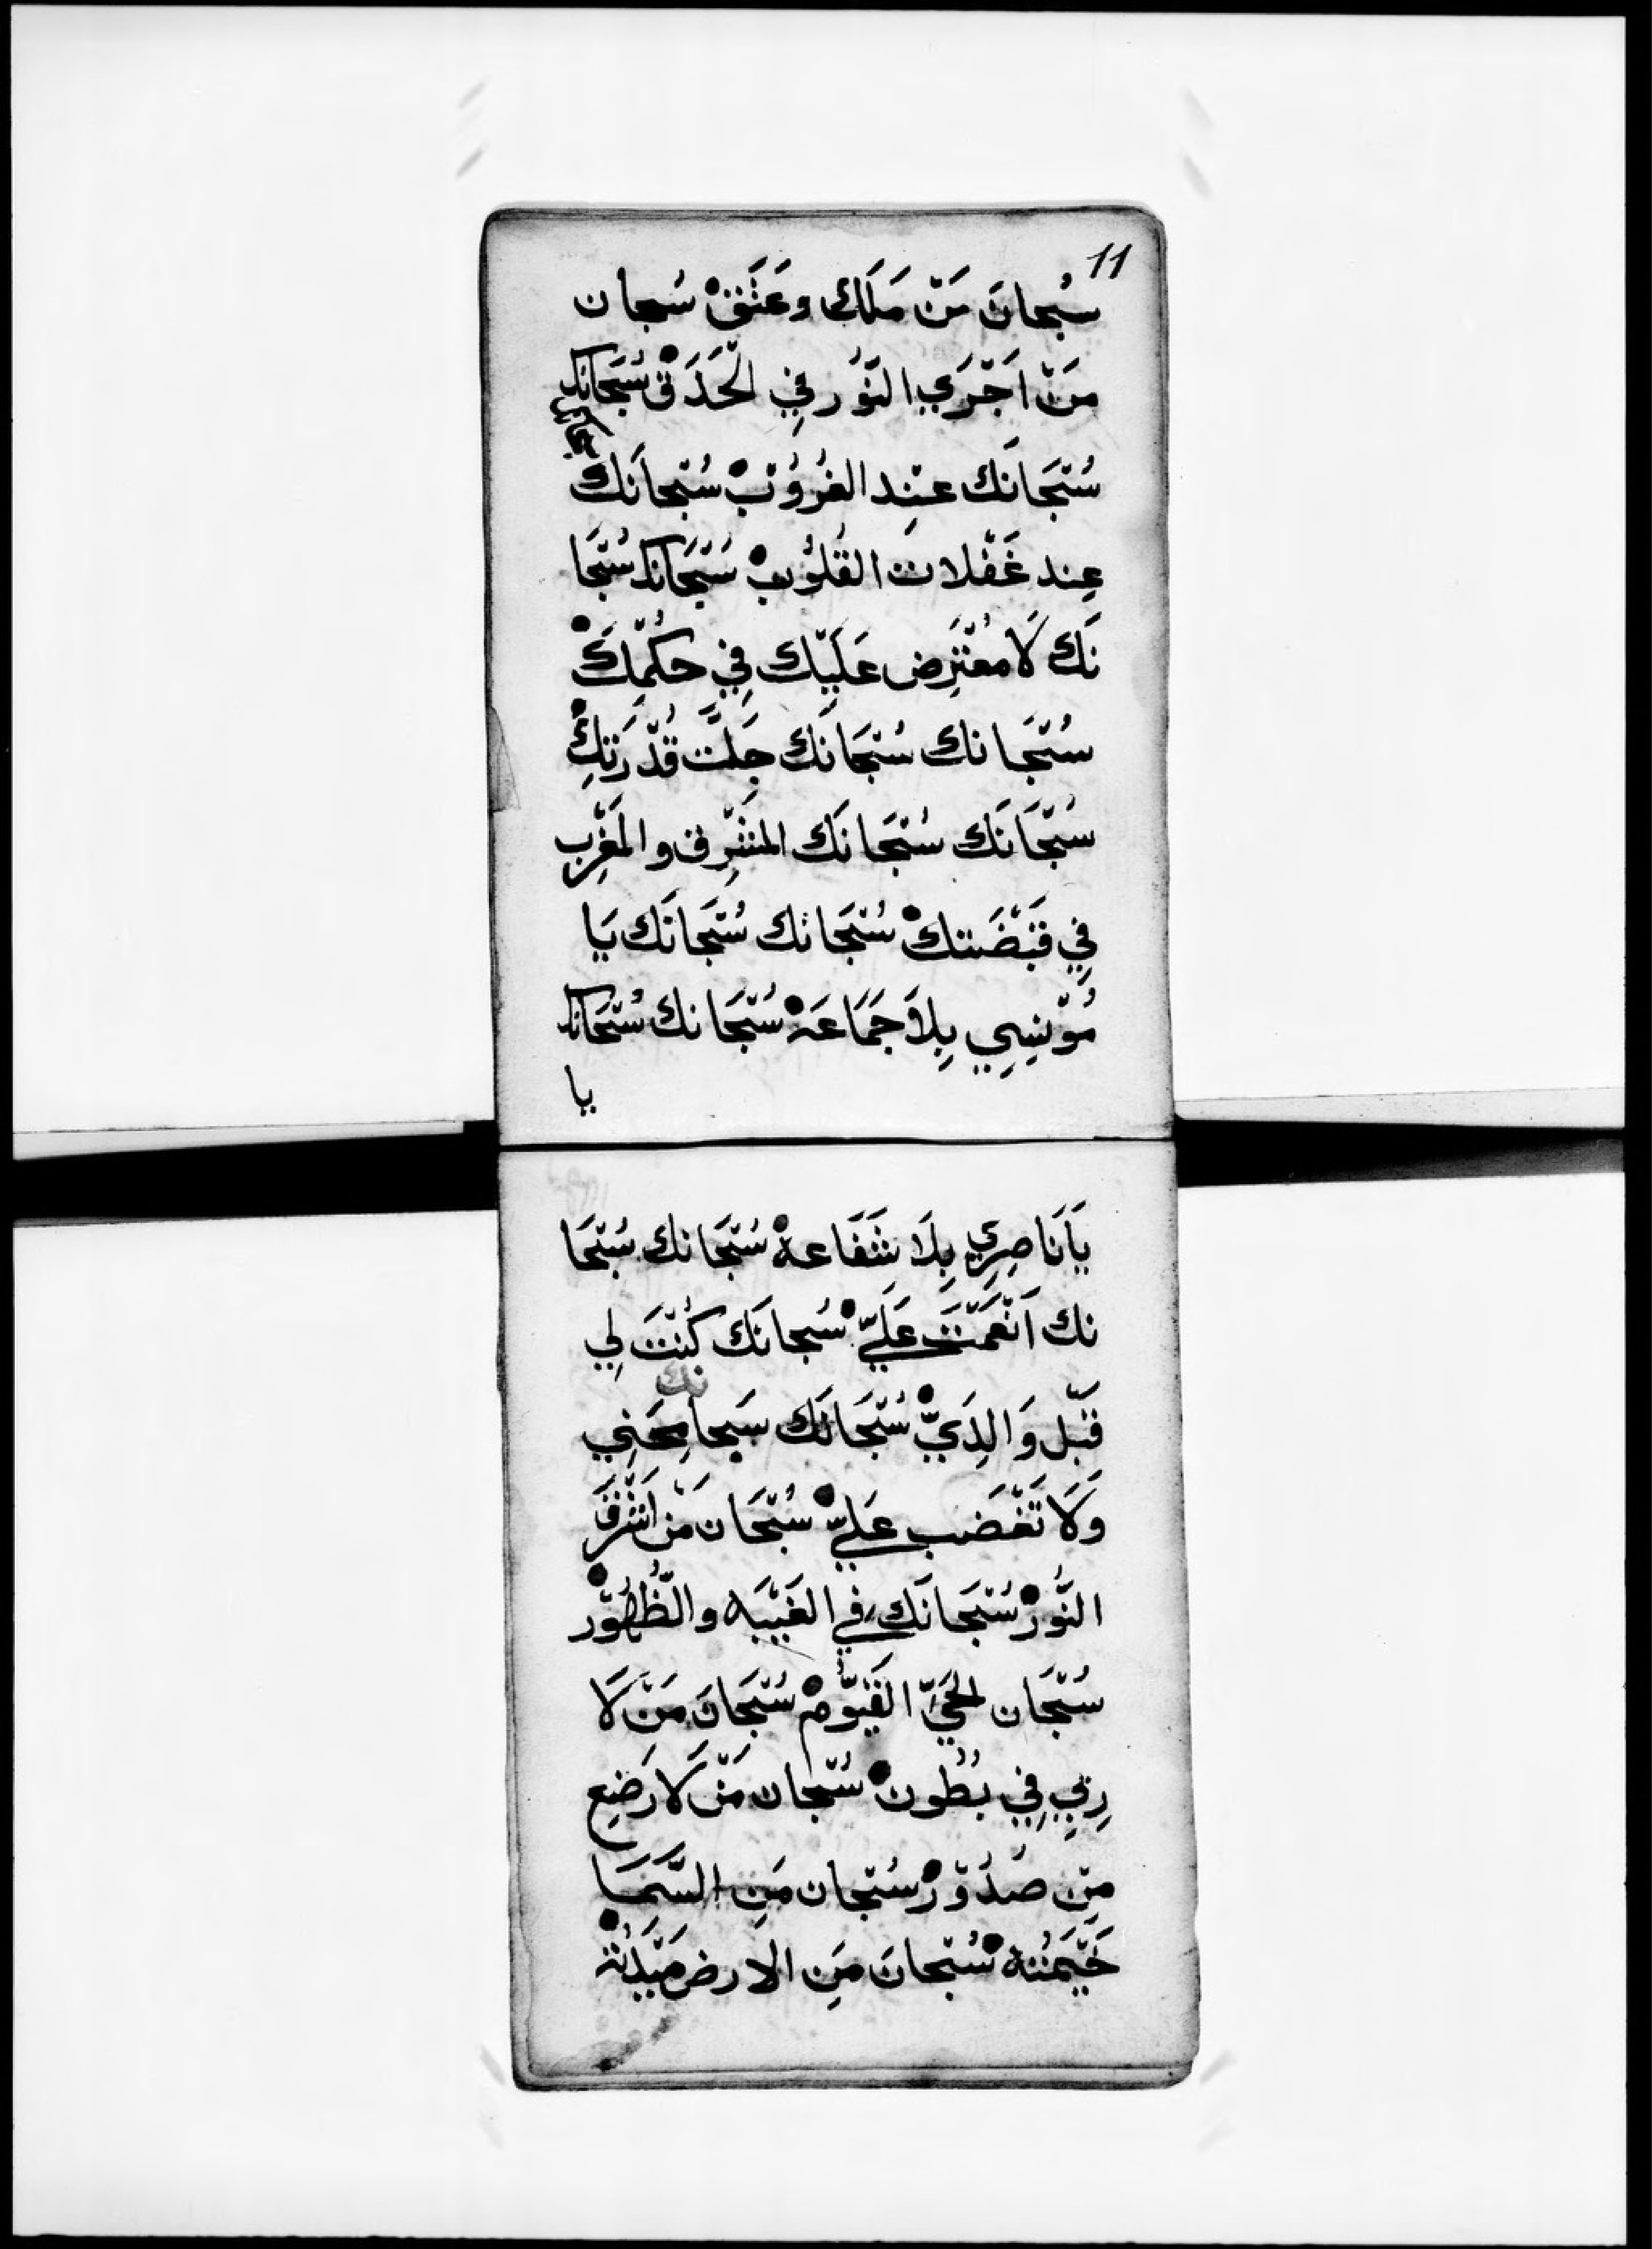 11
سُبحانَ مَنْ مَلَك وعَتَقْ سُبحان
مَنْ اَجْرَي النُّور فِي الْحَدَقْ سُبْحَانك
سُبْحَانَك عنِد الغُرُوْبْ سُبْحانَك
عِند غَفْلات القُلُوْبْ سُبْحَانك سُبْحَا
نَك لَا مُعْتَرِض عَلَيْك فِي حكُمِكَْ
سُبْحَانك سُبْحَانَك جَلَّتْ قُدْرَتِكْ
سُبْحَانَك سُبْحَانَك المشْرِق والمَغْرِب
فِي قَبْضَتكْ سُبْحَانك سُبْحَانَك يَا
مُوْنِسِي بِلَا جَمَاعَهْ سُبْحَانك سُبْحَانك
يا
يَا نَاصِرِي بِلَا شَفَاعهْ سُبْحَانك سُبْحَا
نك اَنْعَمْتَ عَلَيّْ سُبحانَك كُنْتَ لِي
قَبْل وَالِدَيّْ سُبْحَانَك سَبحانك
وَلَا تَغْضَب عَلَيّْ سُبْحَان مَنْ اَشْرَقَ
النُّورْ سُبْحَانَك في الغَيْبَه والظُّهُوْر
سُبْحَان الحَيّ القَيُّومْ سُبْحَانَ مَنْ لَا
رِبِي فِي بُطُونْ سُبْحان مَنْ لَا رَضِع
مِنْ صُدُوْرْ سُبْحان مَنِ السَّمَا
خَيْمَتُهْ سُبْحانَ مَنِ الارض